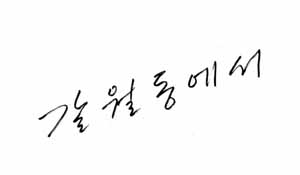 갈월동에서